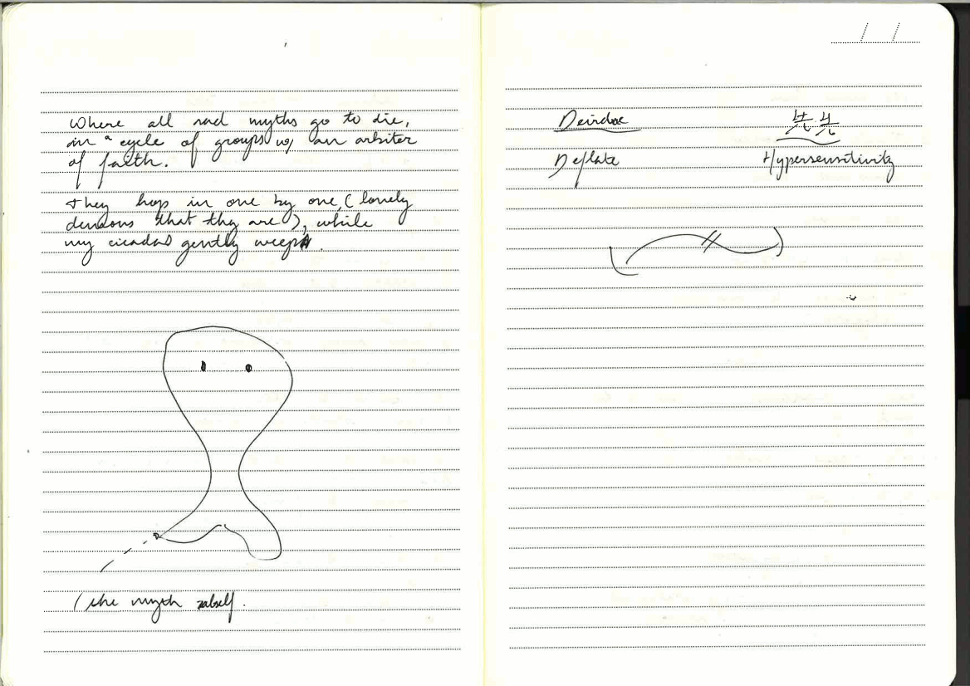 Where all sad myths go to die,
in a cycle of groups w/ an arbiter
of faith.
They hop in one by one (lonely
demons that they are), while
my cicadas gently weep.
(the myth
Deflate
Hypersensitivity
/ /